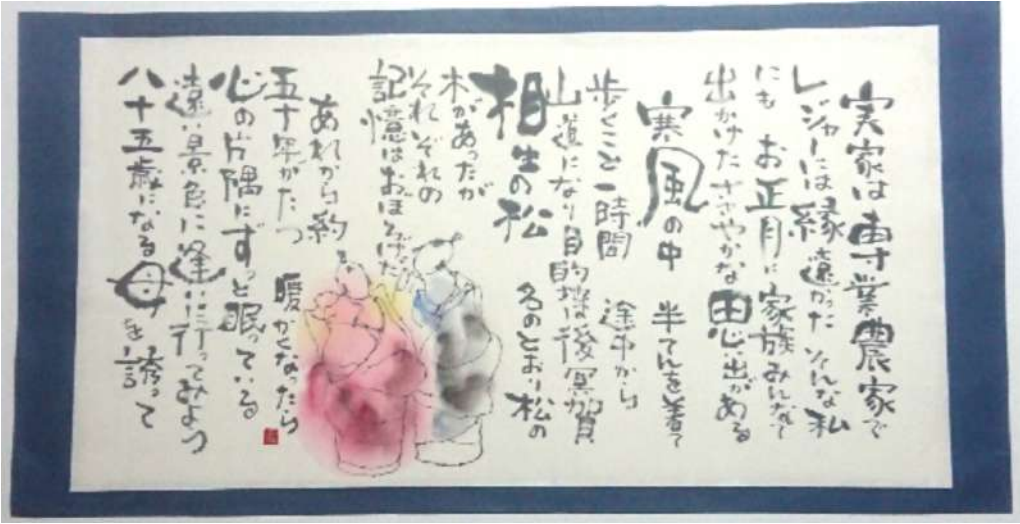 実家は専業農家で
レジャーには縁遠かった そんな私
にも お正月に家族みんなで
出かけたささやかな思い出がある
寒風の中 半てんを着て
歩くこと一時間 途中から
山道になり目的
相生の松 名のとおり松の
木があったが
それぞれの
記憶はおぼろげだ
あれから約
五十年がたつ 暖かくなったら
心の片隅にずっと眠っている
遠い景色に逢いに行ってみよう
八十五歳になる母を誘って